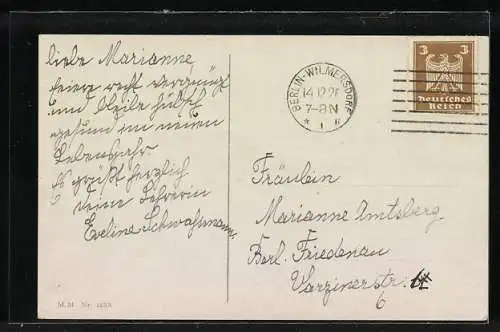 liebe Marianne,
feiere recht vergnügt
und bleibe hübsch
gesund im neuen
Lebensjahr.
Es grüßt herzlich
deine Lehrerin
Eveline Schwahmann.
M.M. Nr.
BERLIN-WILMERSDORF
14.12.
7-8N
* 1
3 3
Deutsches
Reich
Fräulein
Marianne Amtsberg
Berl. Friedenau
Varzinerstr.
6